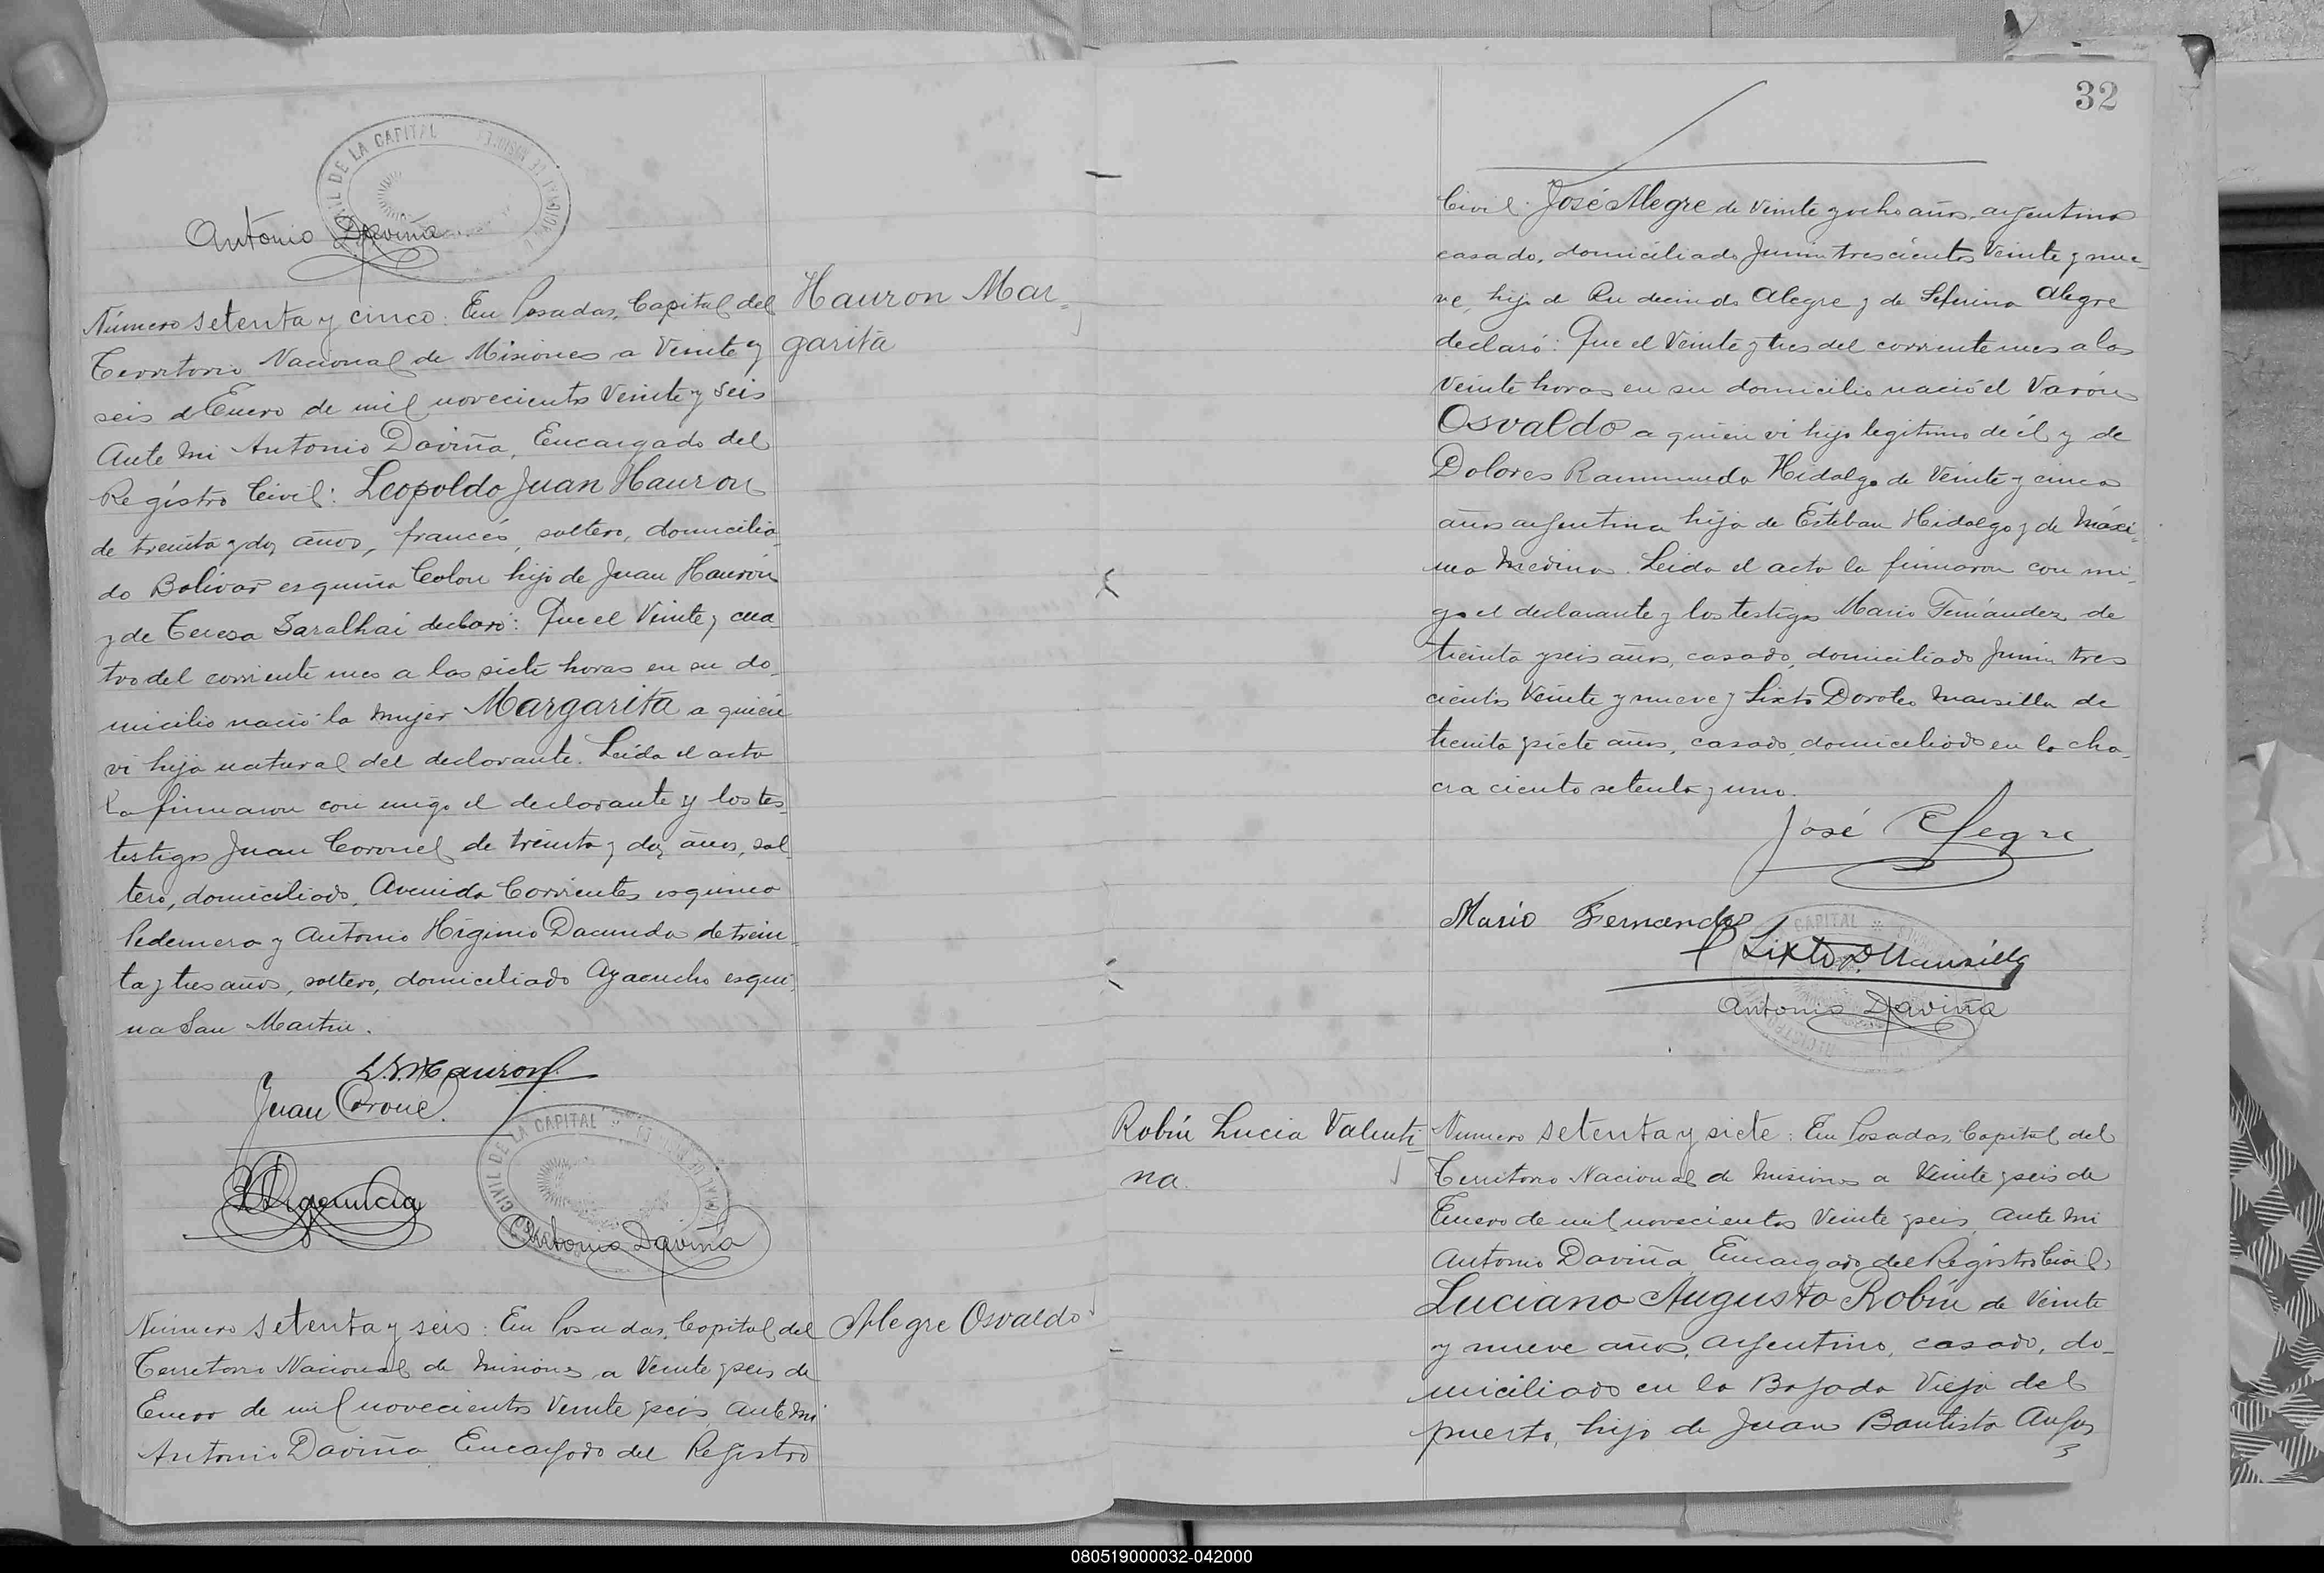 CIVIL DE LA CAPITAL
Antonio Daviña
Número setenta y cinco: En Posadas, Capital del
Territorio Nacional de Misiones a Veinte y
seis d Enero de mil novecientos Veinte y seis
Ante mi Antonio Daviña, Encargado del
Registro Civil: Leopoldo Juan Hauron
de treinta y dos años, francés, soltero, domicilia-
do Bolivar esquina Colon hijo de Juan Haurón
y de Teresa declaró: Que el Veinte y cua-
tro del corriente mes a las siete horas en su do-
micilio nació la mujer Margarita a quien
vi hija natural del declarante. Leida el acta
la firmaron con migo el declarante y los tes-
testigos Juan Coronel de treinta y dos años, sol-
tero, domiciliado, Avenida Corrientes esquina
Pedernera y Antonio Higinio Dacunda de trein-
ta y tres años, soltero, domiciliado Ayacucho esqui-
na San Martin.
Hauron Mar-
garita
L. J. Hauron
Juan Corone
CIVIL DE LA CAPITAL
Antonio Daviña
Número setenta y seis: En Posadas, Capital del
Territorio Nacional de Misiones, a Veinte y seis de
Enero de mil novecientos Veinte y seis, ante mi
Antonio Daviña Encargado del Registro
Alegre Osvaldo
32
Civil: José Alegre de Veinte y ocho años, argentino
casado, domiciliado Junin trescientos Veinte y nue-
ve, hijo de Rudecindo Alegre y de Seferina Alegre
declaró: Que el Veinte y tres del corriente mes a las
veinte horas en su domicilio nació el Varón
Osvaldo a quien vi hijo legitimo de él y de
Dolores Raimunda Hidalgo de Veinte y cinco
años argentina hija de Esteban Hidalgo y de Máxi-
ma Medina. Leida el acta la firmaron con mi-
go el declarante y los testigos Mario Fernández de
treinta y seis años, casado, domiciliado Junin tres
cientos Veinte y nueve y Sixto Doroteo Mansilla de
treinta y siete años, casado, domiciliado en la cha-
cra ciento setenta y uno.
José Alegre
Mario Fernandez
Sixto D. Mansilla
CAPITAL
Antonio Daviña
Robín Lucia Valenti
na.
Número setenta y siete: En Posadas, Capital del
Territorio Nacional de Misiones a Veinte y seis de
Enero de mil novecientos Veinte y seis, ante mi
Antonio Daviña, Encargado del Registro Civil,
Luciano Augusto Robín de Veinte
y nueve años, argentino, casado, do-
miciliado en la Bajada Vieja del
puerto, hijo de Juan Bautista
080519000032-042000